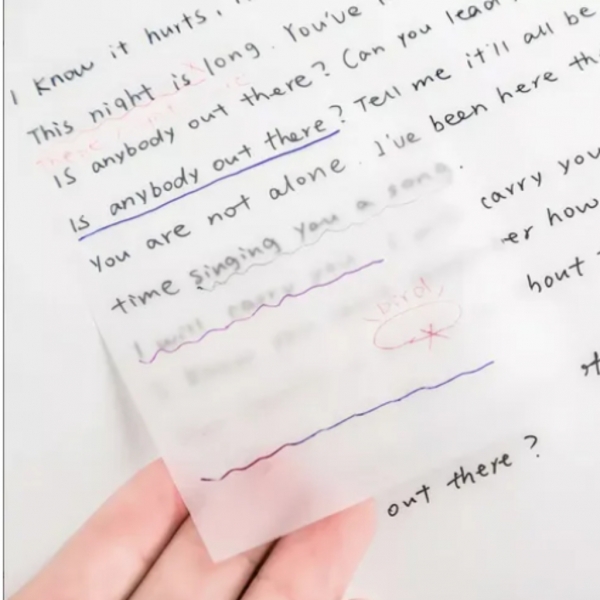 I know it hurts,
This night is long. You've
Is anybody out there? Can you lead
Is anybody out there? Tell me it'll all be
You are not alone. I've been here the
time singing you a song.
I will carry you. I will carry you
er how
bout
bird!
out there?